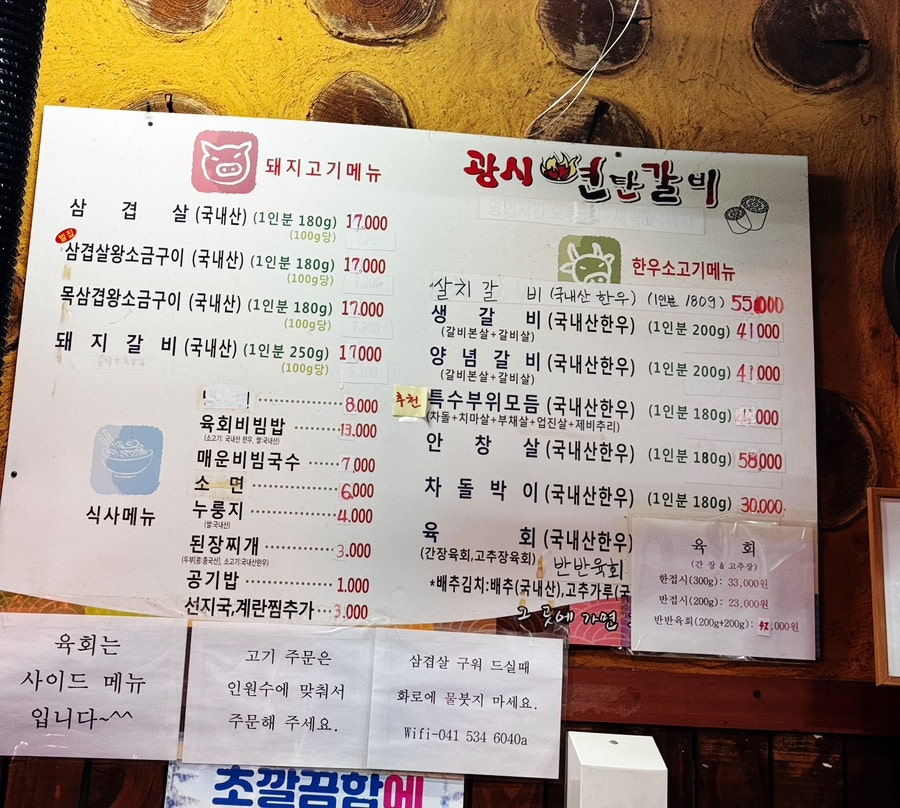 돼지고기메뉴
삼 겹 살 (국내산) (1인분 180g) 17,000
(100g당)
별미
삼겹살왕소금구이 (국내산) (1인분 180g) 17,000
(100g당)
목삼겹왕소금구이 (국내산) (1인분 180g) 17,000
(100g당) 7,200
돼 지 갈 비 (국내산) (1인분 250g) 17,000
(100g당)
식사메뉴
8,000
육회비빔밥 13,000
(소고기: 국내산 한우, 쌀:국내산)
매운비빔국수 7,000
소 면 6,000
누룽지 4,000
(쌀:국내산)
된장찌개 3,000
(두부[콩:중국산], 소고기:국내산한우)
공기밥 1,000
선지국,계란찜추가 3,000
광시 연탄갈비
한우소고기메뉴
살치갈 비 (국내산 한우) (1인분 180g) 55,000
생 갈 비 (국내산한우) (1인분 200g) 41,000
(갈비본살+갈비살)
양 념 갈 비 (국내산한우) (1인분 200g) 41,000
(갈비본살+갈비살)
추천
특수부위모듬 (국내산한우) (1인분 180g)
(차돌+치마살+부채살+업진살+제비추리)
안 창 살 (국내산한우) (1인분 180g) 58,000
차 돌 박 이 (국내산한우) (1인분 180g) 30,000
육 회 (국내산한우)
(간장육회,고추장육회)
반반육회
*배추김치:배추(국내산),고추가루(국
그 곳에 가면
육 회
(간 장 & 고추장)
한접시(300g): 33,000원
반접시(200g): 23,000원
반반육회(200g+200g): 42,000원
육회는
사이드 메뉴
입니다~^^
고기 주문은
인원수에 맞춰서
주문해 주세요.
삼겹살 구워 드실때
화로에 물붓지 마세요.
Wifi-041 534 6040a
초깔끔함에